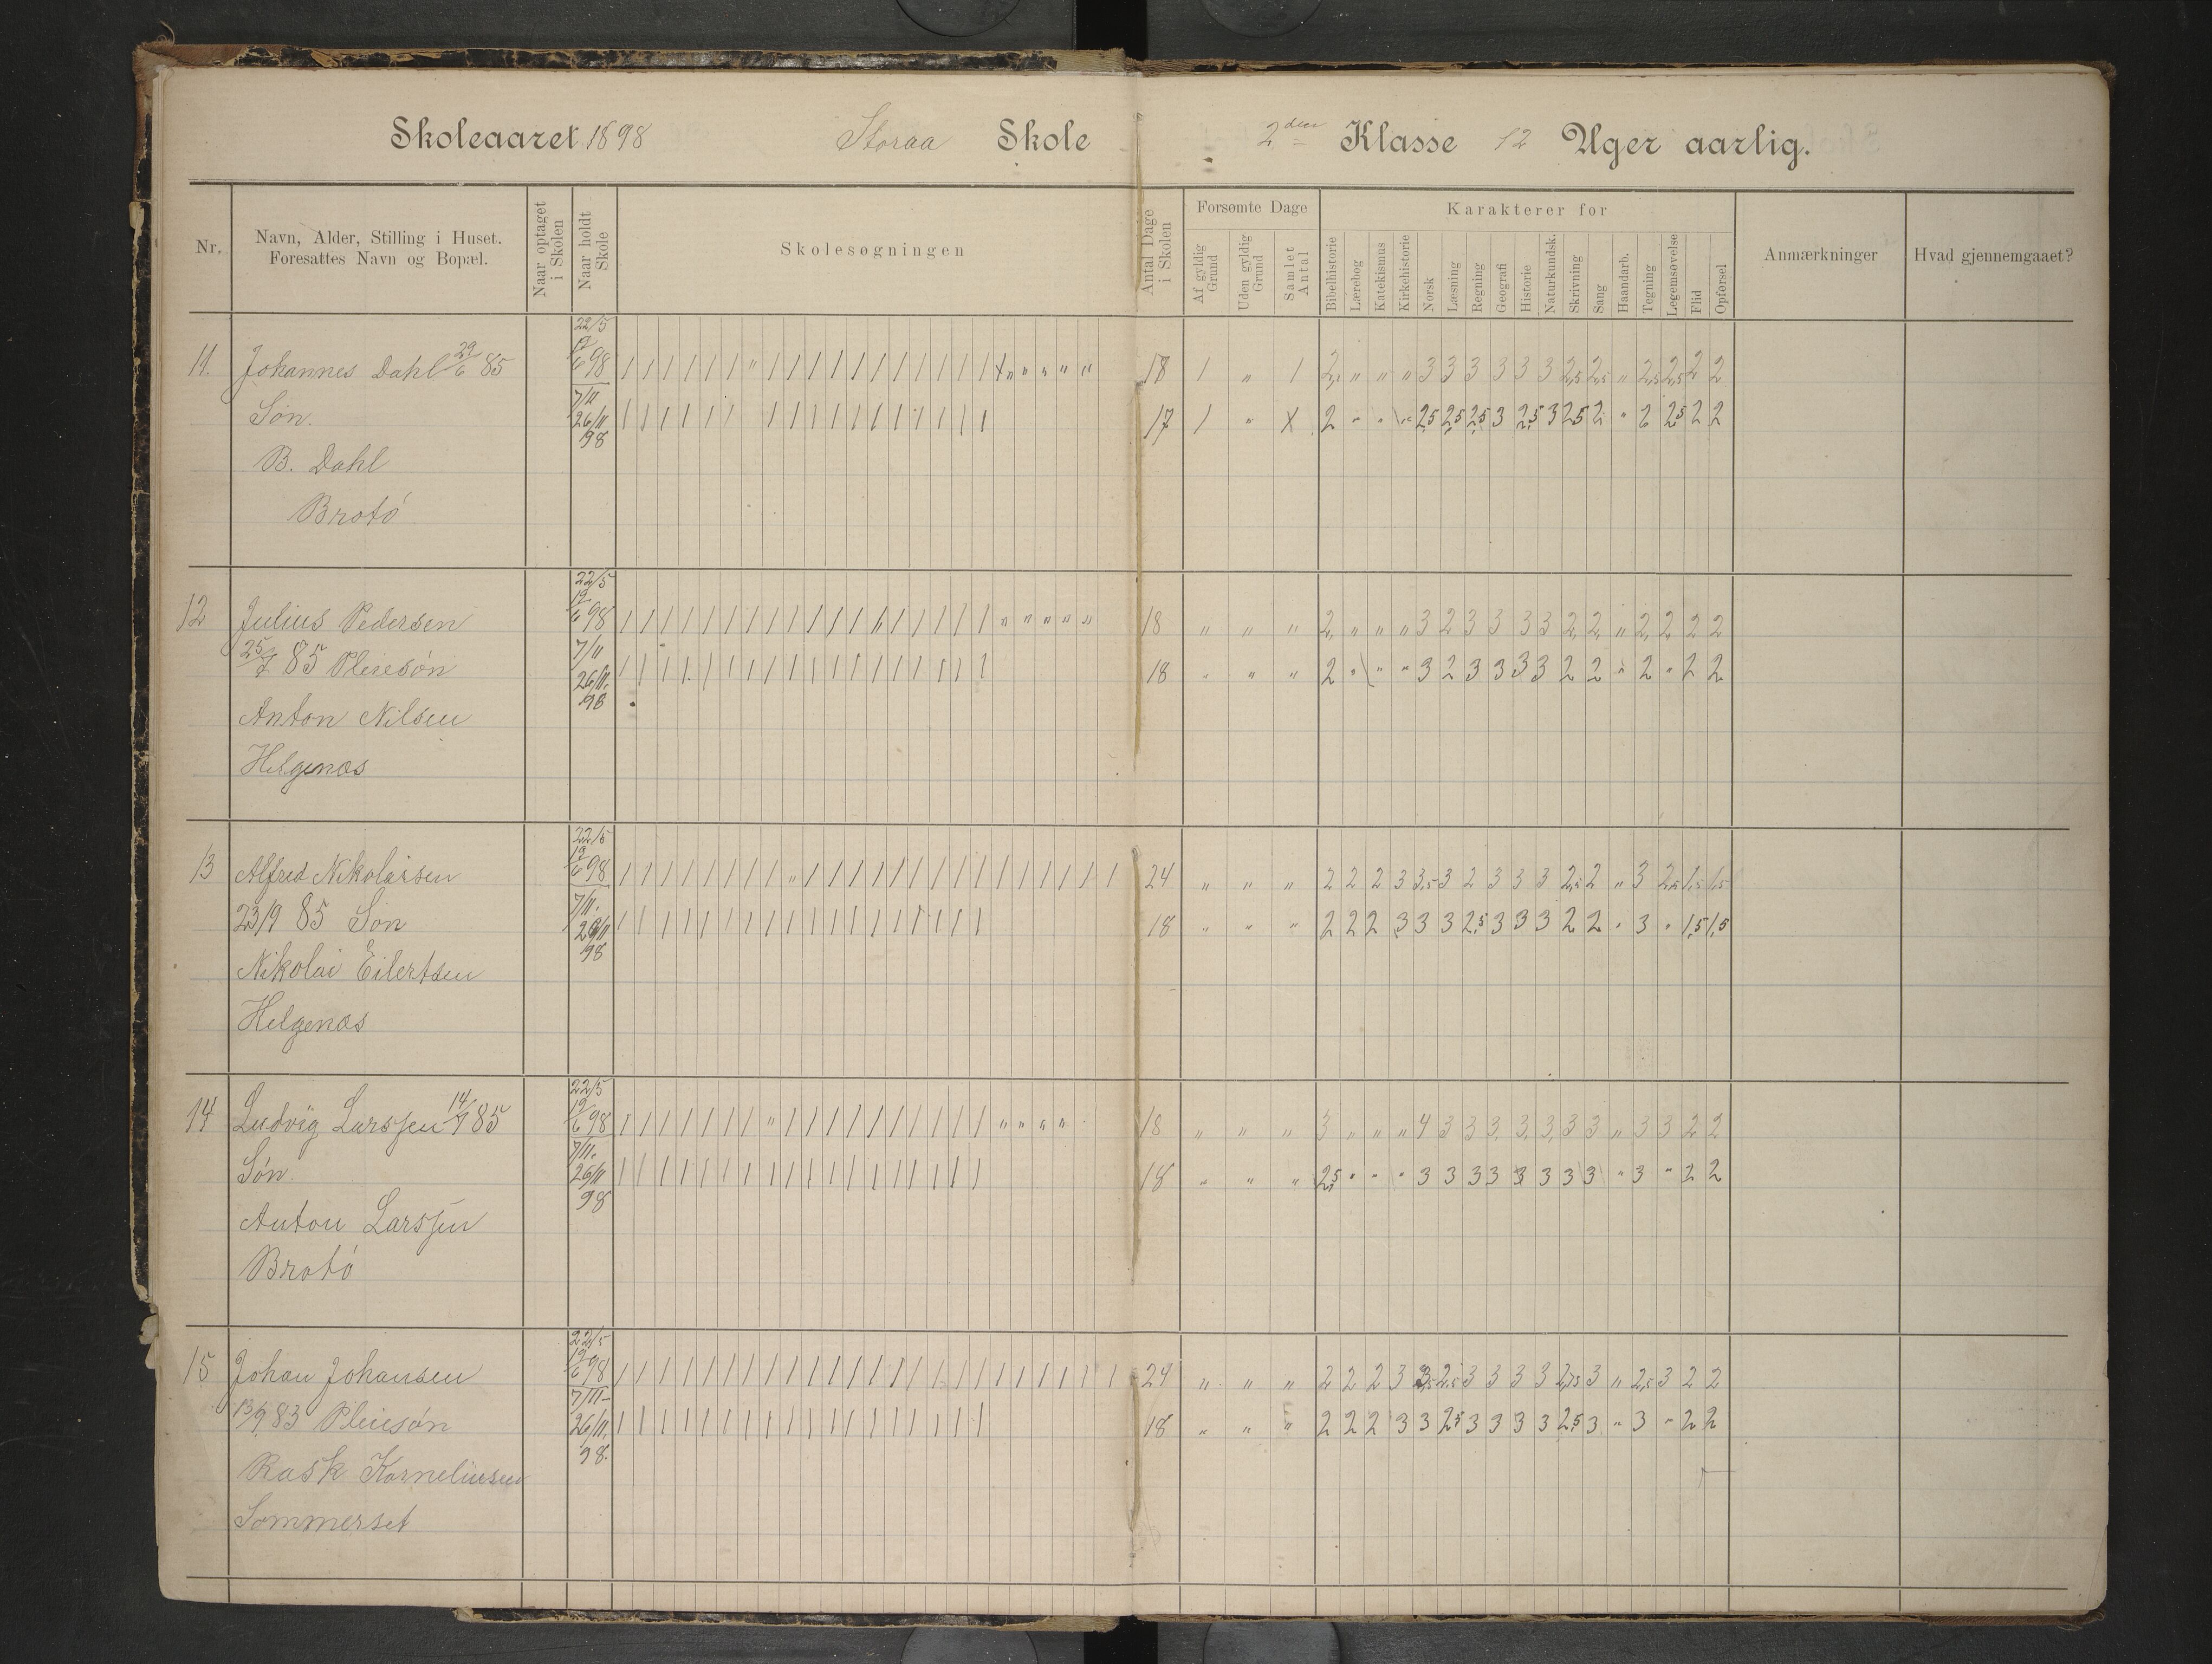 Skoleaaret 1898 Storaa Skole 2den Klasse 12 Uger aarlig.
Nr.
Navn, Alder, Stilling i Huset.
Foresattes Navn og Bopæl.
Naar optaget
i Skolen
Naar holdt
Skole
Skolesøgningen
Antal Dage
i Skolen
Forsømte Dage
Af gyldig
Grund
Uden gyldig
Grund
Samlet
Antal
Karakterer for
Bibelhistorie
Lærebog
Katekismus
Kirkehistorie
Norsk
Læsning
Regning
Geografi
Historie
Naturkundsk.
Skrivning
Sang
Haandarb.
Tegning
Legemsøvelse
Flid
Opførsel
Anmærkninger
Hvad gjennemgaaet?
22/5
11. Johannes Dahl 29/6 85 19/6 98 / / / / / / " / / / / / / / / / / / " " " " " 18 1 " 1 2 " " " 3 3 3 3 3 3 2,5 2,5 " 2,5 2,5 2 2
7/11
Søn. 26/11 / / / / / / / / / / / / / / / / / 17 1 " 2 " " " 2,5 2,5 2,5 3 2,5 3 2,5 2 " 2 2,5 2 2
98
B. Dahl
Brotó
22/5
12 Julius Pedersen 19/6 98 / / / / / / / / / / / / / / / / / / " " " " " 18 " " " 2 " " " 3 2 3 3 3 3 2 2 " 2 2 2 2
7/11
25/7 85 Pleiesøn 26/11. / / / / / / / / / / / / / / / / / / 18 " " " 2 " " " 3 2 3 3 3 3 2 2 " 2 " 2 2
98
Anton Nilsen
Helgenæs
22/5
13 Alfred Nikolaisen 19/6 98 / / / / / / / / " / / / / / / / / / / / / / / / 24 " " " 2 2 2 3 3,5 3 2 3 3 3 2,5 2 " 3 2,5 1,5 1,5
7/11.
23/9 85 Søn 26/11 / / / / / / / / / / / / / / / / / / 18 " " " 2 2 2 3 3 3 2,5 3 3 3 2 2 " 3 " 1,5 1,5
98
Nikolai Eilertsen
Helgenæs
22/5
14 Ludvig Larssen 14/7 85 19/6 98 / / / / / / / " / / / / / / / / / / " " " " 18 " " " 3 " " " 4 3 3 3 3 3 3 3 " 3 3 2 2
7/11.
Søn. 26/11 / / / / / / / / / / / / / / / / / / 18 " " " 2,5 " " " 3 3 3 3 3 3 3 3 " 3 " 2 2
98
Anton Larssen
Brotó
22/5
15 Johan Johansen 19/6 98 / / / / / / / / / / / / / / / / / / / / / / / / 24 " " " 2 2 2 3 2,5 3 3 3 3 2,75 3 " 2,5 3 2 2
7/11-
13/9 83 Pleiesøn 26/11. / / / / / / / / / / / / / / / / / / 18 " " " 2 2 2 3 3 2,5 3 3 3 3 2,5 3 " 3 " 2 2
98.
Rask Korneliusen
Sommerset